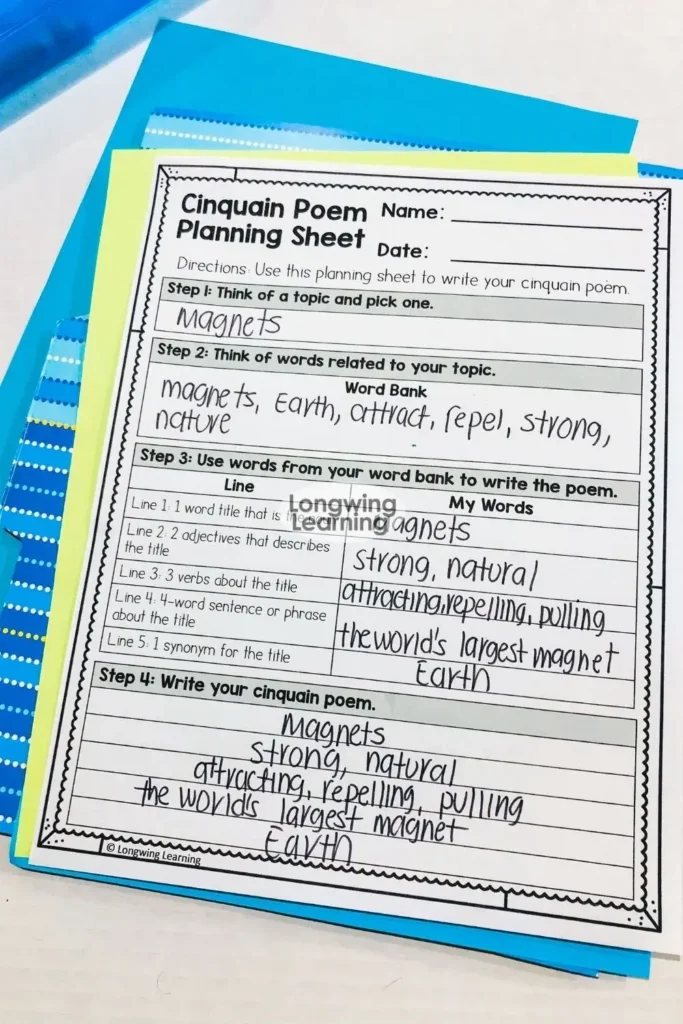 Cinquain Poem
Planning Sheet
Name:
Date:
Directions: Use this planning sheet to write your cinquain poem.
Step 1: Think of a topic and pick one.
magnets
Step 2: Think of words related to your topic.
Word Bank
magnets, Earth, attract, repel, strong,
nature
Step 3: Use words from your word bank to write the poem.
Line
My Words
Line 1: 1 word title that is
Longwing
Learning
magnets
Line 2: 2 adjectives that describes
the title
strong, natural
Line 3: 3 verbs about the title
attracting,repelling, pulling
Line 4: 4-word sentence or phrase
about the title
the world's largest magnet
Line 5: 1 synonym for the title
Earth
Step 4: Write your cinquain poem.
Magnets
strong, natural
attracting, repelling, pulling
the world's largest magnet
Earth
© Longwing Learning